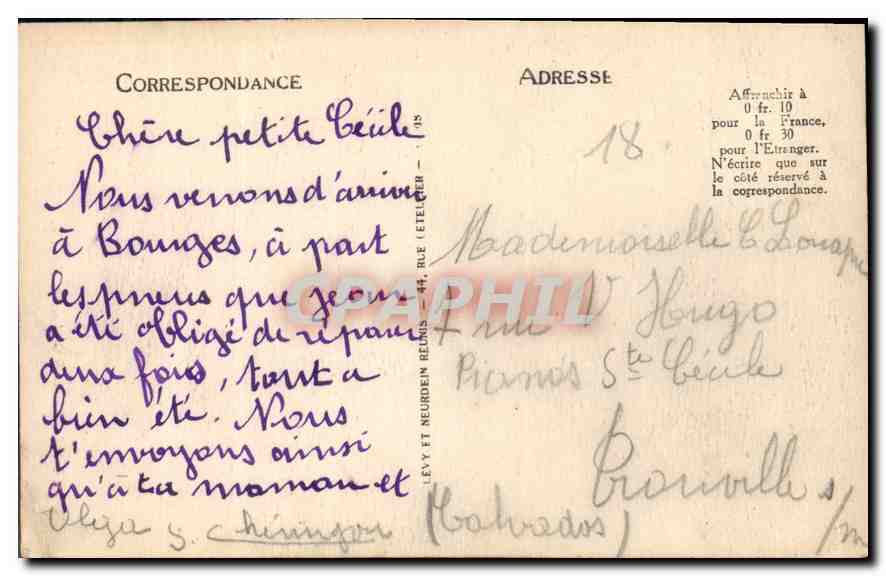 CORRESPONDANCE
Chère petite Cécile
Nous venons d'arriver
à Bourges, à part
les pneus que Jean
a été obligé de réparer
deux fois, tout a
bien été. Nous
t'envoyons ainsi
qu'à ta maman et
LEVY ET NEURDEIN RÉUNIS — 44, RUE LETELLIER —
ADRESSE
Affranchir à
0 fr. 10
pour la France,
0 fr 30
pour l'Etranger.
N'écrire que sur
le côté réservé à
la correspondance.
18
Mademoiselle C
rue V Hugo
Pianos Ste Cécile
Trouville s/m
(Calvados)
CPAPHIL